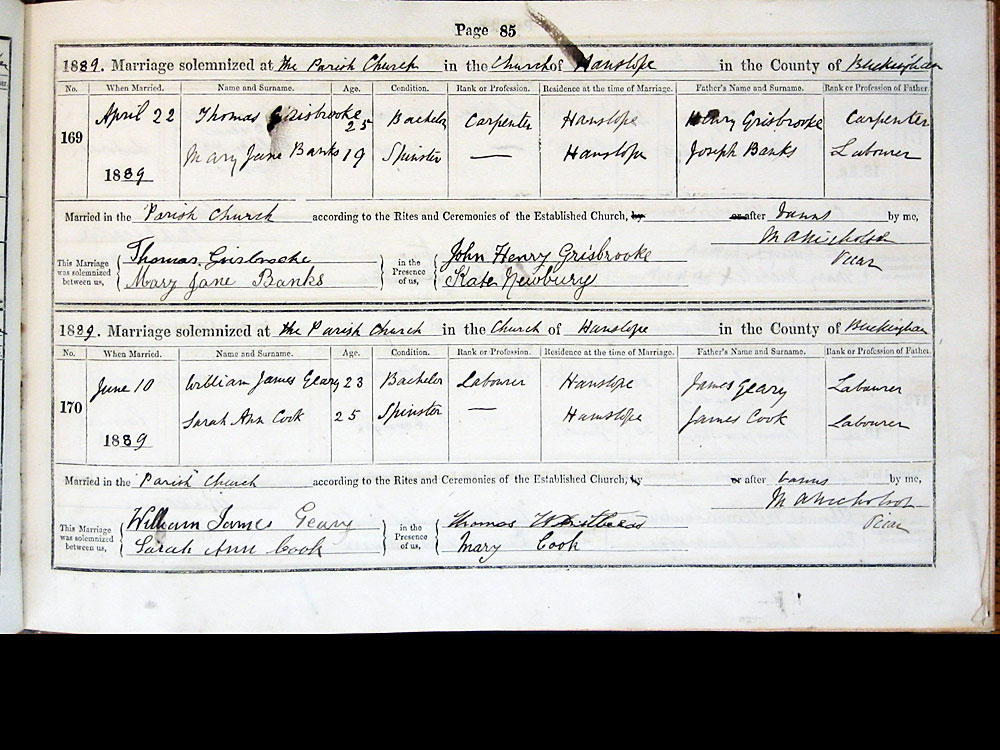 Page 85
1889. Marriage solemnized at the Parish Church in the Church of Hanslope in the County of Buckingham
No. When Married. Name and Surname. Age. Condition. Rank or Profession. Residence at the time of Marriage. Father's Name and Surname. Rank or Profession of Father.
169 April 22 Thomas Grisbrooke 25 Bachelor Carpenter Hanslope Henry Grisbrooke Carpenter
Mary Jane Banks 19 Spinster — Hanslope Joseph Banks Labourer
1889
Married in the Parish Church according to the Rites and Ceremonies of the Established Church, by or after banns by me,
Vicar
This Marriage was solemnized between us, Thomas Grisbrooke in the Presence of us, John Henry Grisbrooke
Mary Jane Banks Kate Newbury
1889. Marriage solemnized at the Parish Church in the Church of Hanslope in the County of Buckingham
No. When Married. Name and Surname. Age. Condition. Rank or Profession. Residence at the time of Marriage. Father's Name and Surname. Rank or Profession of Father.
170 June 10 William James Geary 23 Bachelor Labourer Hanslope James Geary Labourer
Sarah Ann Cook 25 Spinster — Hanslope James Cook Labourer
1889
Married in the Parish Church according to the Rites and Ceremonies of the Established Church, by or after banns by me,
Vicar
This Marriage was solemnized between us, William James Geary in the Presence of us, Thomas
Sarah Ann Cook Mary Cook